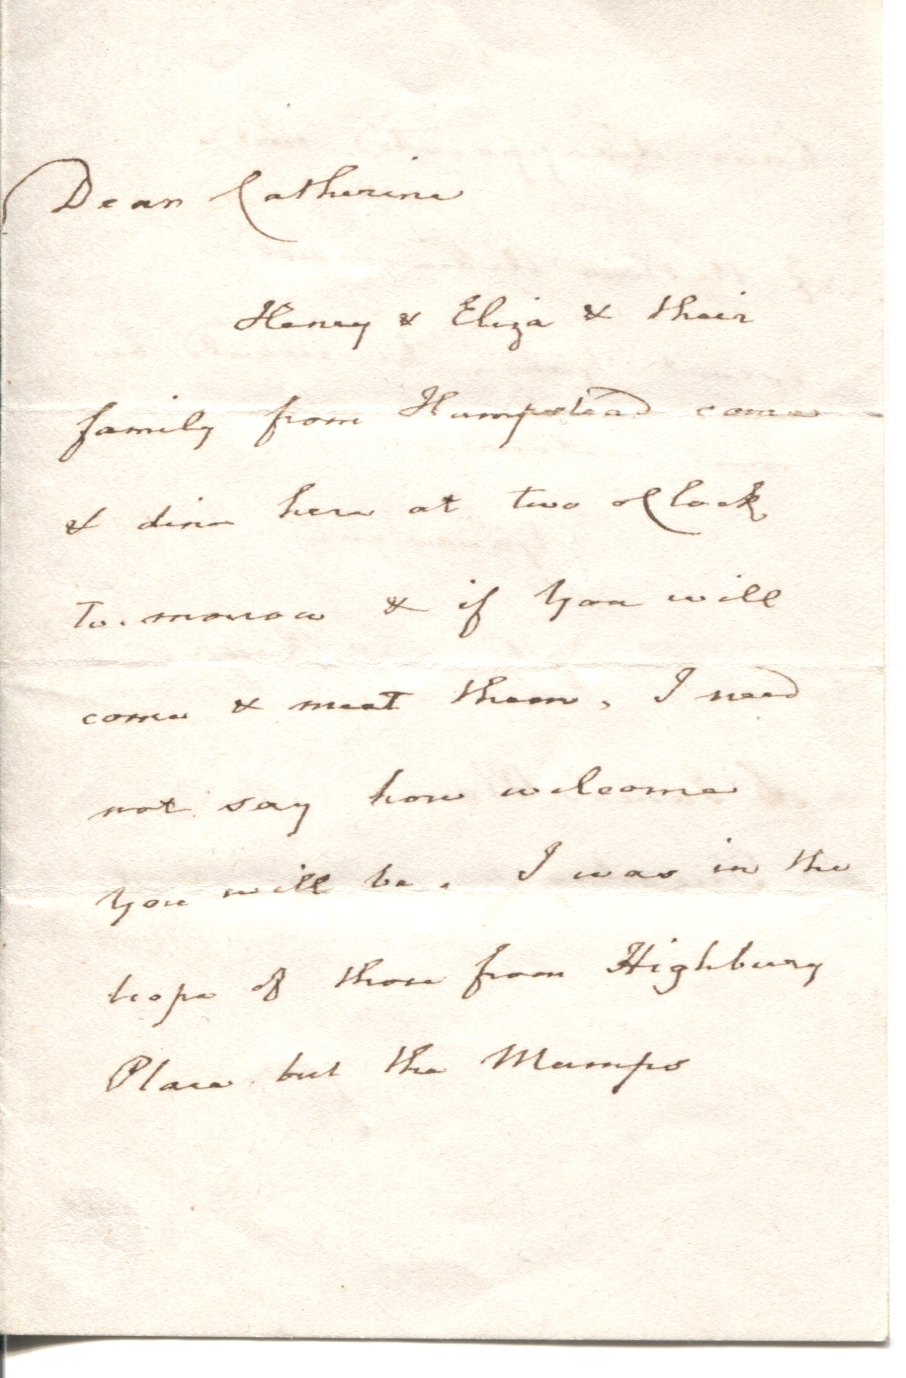 Dear Catherine
Henry & Eliza & their
family from Hampstead come
& dine here at two oClock
To.morrow & if you will
come & meet them, I need
not say how welcome
you will be. I was in the
hope of those from Highbury
Place but the Mumps